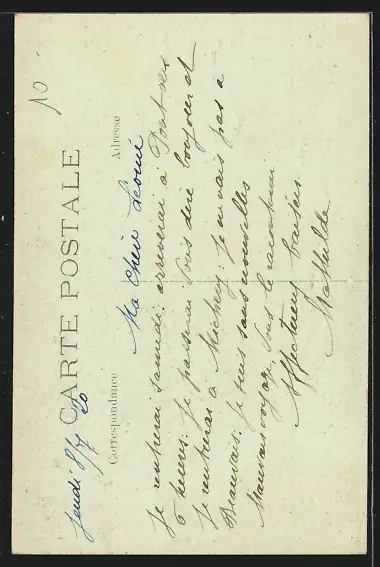 10
CARTE POSTALE
Jeudi 8/7 20
Correspondance
Adresse
Ma Chère Léonie
Je rentrerai samedi; arriverai à Pont
6 heures. Je passerai vous dire bonjour et
je rentrerai à Michery. Je ne vais pas à
Beauvais. Je suis sans nouvelles
Mauvais voyage. Vous le raconterai
Affectueux baisers
Mathilde